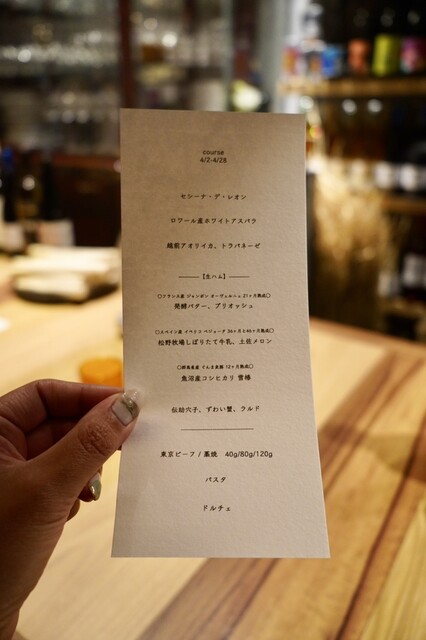 course
4/2-4/28
セシーナ・デ・レオン
ロワール産ホワイトアスパラ
越前アオリイカ、トラパネーゼ
【生ハム】
○フランス産 ジャンボン オーヴェルニュ 21ヶ月熟成○
発酵バター、ブリオッシュ
○スペイン産 イベリコ ベジョータ 36ヶ月&40ヶ月熟成○
松野牧場しぼりたて牛乳、土佐メロン
○群馬県産 ぐんま麦豚 12ヶ月熟成○
魚沼産コシヒカリ 雪椿
伝助穴子、ずわい蟹、ラルド
東京ビーフ / 藁焼 40g/80g/120g
パスタ
ドルチェ